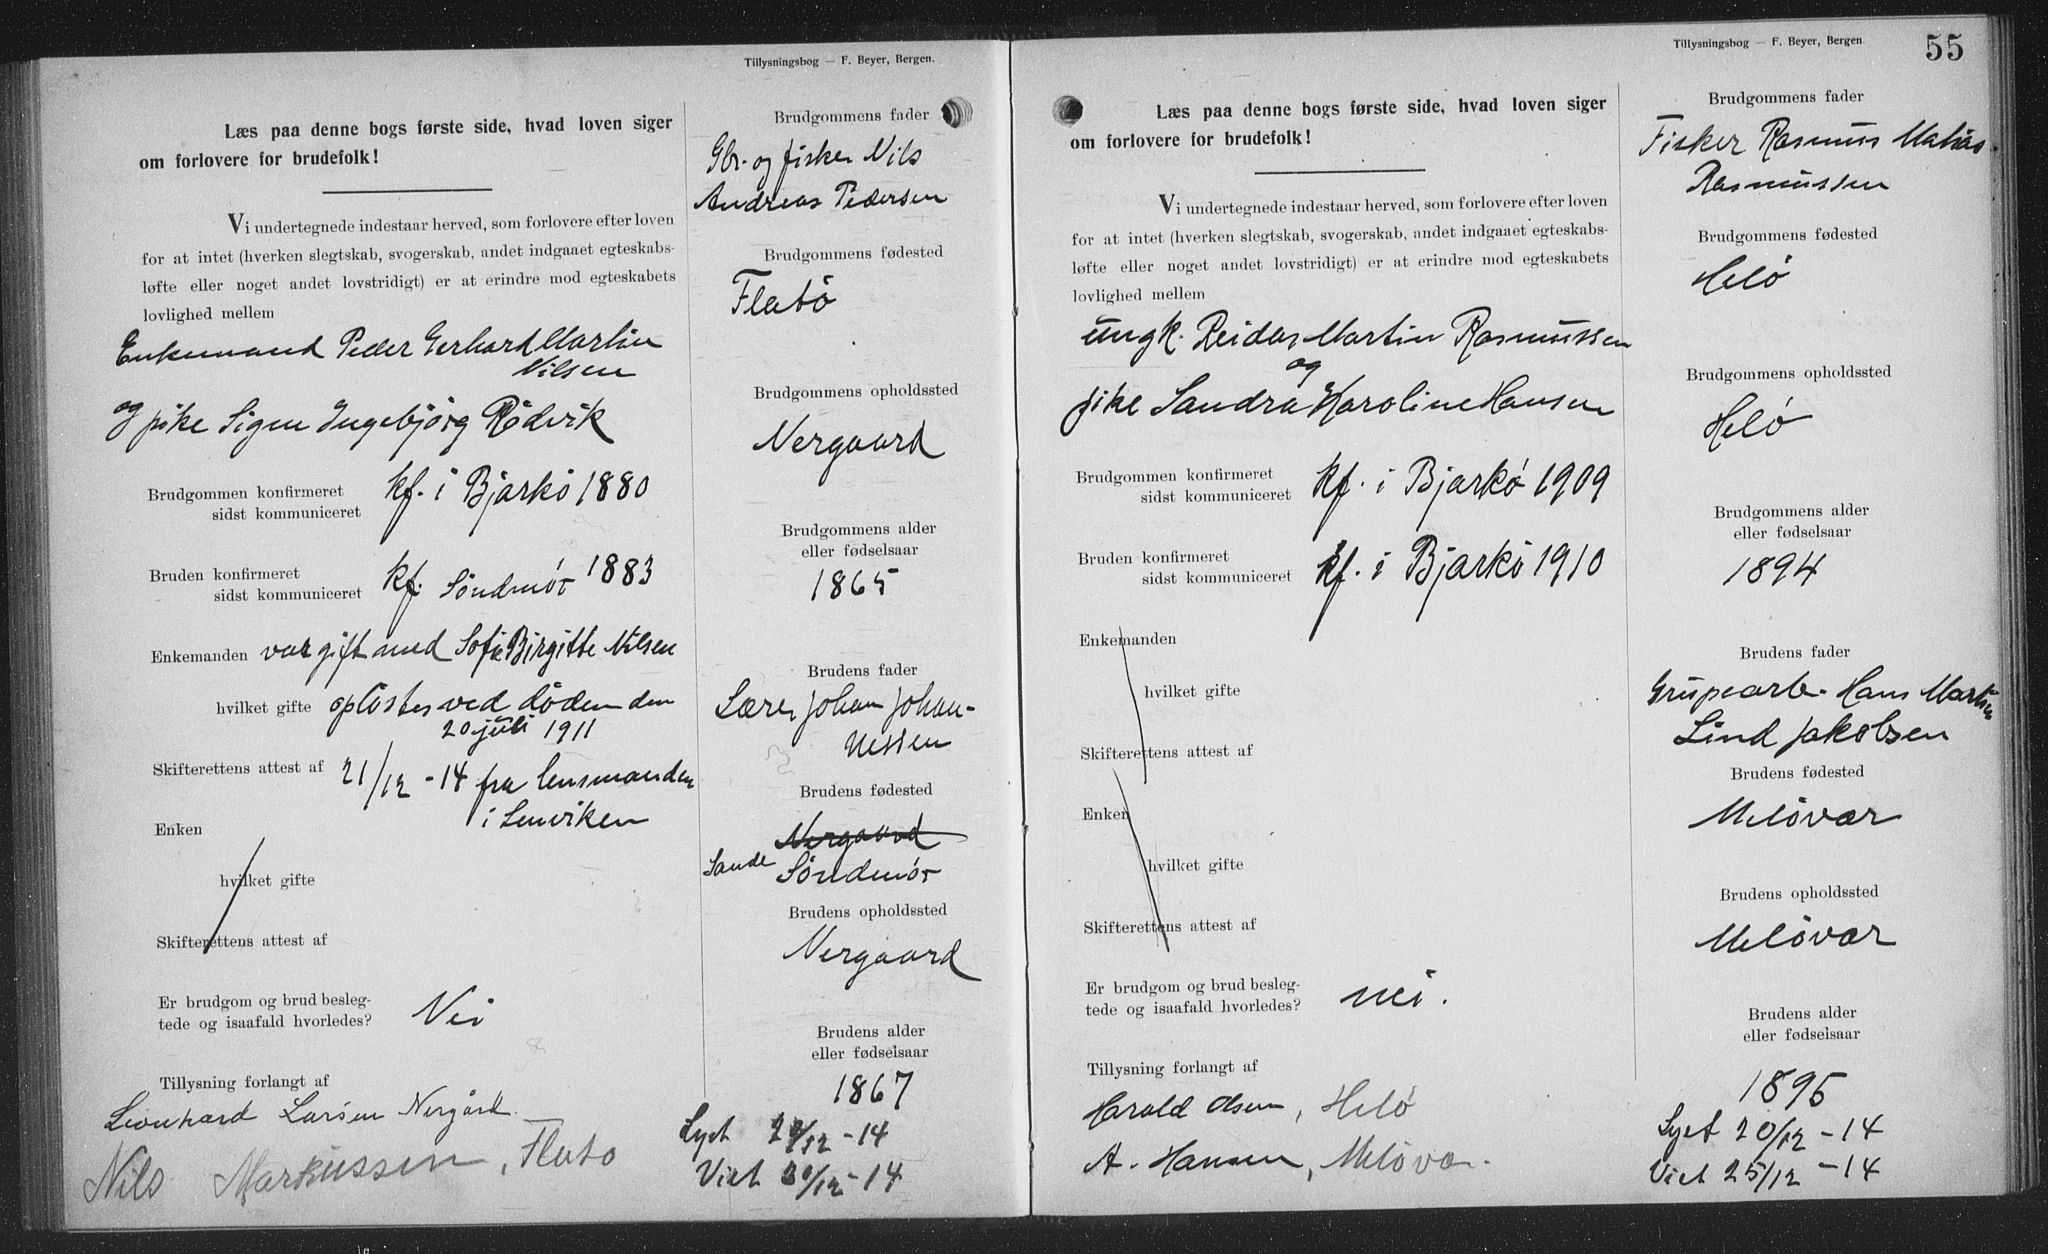 Tillysningsbog — F. Beyer, Bergen.
Læs paa denne bogs første side, hvad loven siger
om forlovere for brudefolk!
Vi undertegnede indestaar herved, som forlovere efter loven
for at intet (hverken slegtskab, svogerskab, andet indgaaet egteskabs-
løfte eller noget andet lovstridigt) er at erindre mod egteskabets
lovlighed mellem
Enkemand Peder Gerhard Martin
Nilsen
og pike Signe Ingebjørg Rødvik
Brudgommen konfirmeret
sidst kommuniceret
kf. i Bjarkö 1880
Bruden konfirmeret
sidst kommuniceret
kf. Söndmör 1883
Enkemanden var gift med Sofie Birgitte Nilsen
hvilket gifte opløstes ved døden den
20 juli 1911
Skifterettens attest af 21/12 -14 fra lensmanden
i Lenviken
Enken
hvilket gifte
Skifterettens attest af
Er brudgom og brud besleg-
tede og isaafald hvorledes?
Nei
Tillysning forlangt af
Leonhard Larsen Nergård.
Nils Markussen, Flatø
Brudgommens fader
Gbr. og fisker Nils
Andreas Pedersen
Brudgommens fødested
Flatö
Brudgommens opholdssted
Nergaard
Brudgommens alder
eller fødselsaar
1865
Brudens fader
Lærer Johan Johan-
nessen
Brudens fødested
Nergaard
Sande Söndmör
Brudens opholdssted
Nergaard
Brudens alder
eller fødselsaar
1867
Lyst /12 -14
Viet 30/12 -14
Tillysningsbog — F. Beyer, Bergen.
55
Læs paa denne bogs første side, hvad loven siger
om forlovere for brudefolk!
Vi undertegnede indestaar herved, som forlovere efter loven
for at intet (hverken slegtskab, svogerskab, andet indgaaet egteskabs-
løfte eller noget andet lovstridigt) er at erindre mod egteskabets
lovlighed mellem
ungk. Reidar Martin Rasmussen
og
pike Sandra Karoline Hansen
Brudgommen konfirmeret
sidst kommuniceret
kf. i Bjarkö 1909
Bruden konfirmeret
sidst kommuniceret
kf. i Bjarkö 1910
Enkemanden
hvilket gifte
Skifterettens attest af
Enken
hvilket gifte
Skifterettens attest af
Er brudgom og brud besleg-
tede og isaafald hvorledes?
nei.
Tillysning forlangt af
Harald Olsen, Helö
A. Hansen, Melövær.
Brudgommens fader
Fisker Rasmus Matias
Rasmussen
Brudgommens fødested
Helö
Brudgommens opholdssted
Helö
Brudgommens alder
eller fødselsaar
1894
Brudens fader
Grupearb. Hans Martin
Lind Jakobsen
Brudens fødested
Melövær
Brudens opholdssted
Melövær
Brudens alder
eller fødselsaar
1895
Lyst 20/12 -14
Viet 25/12 -14